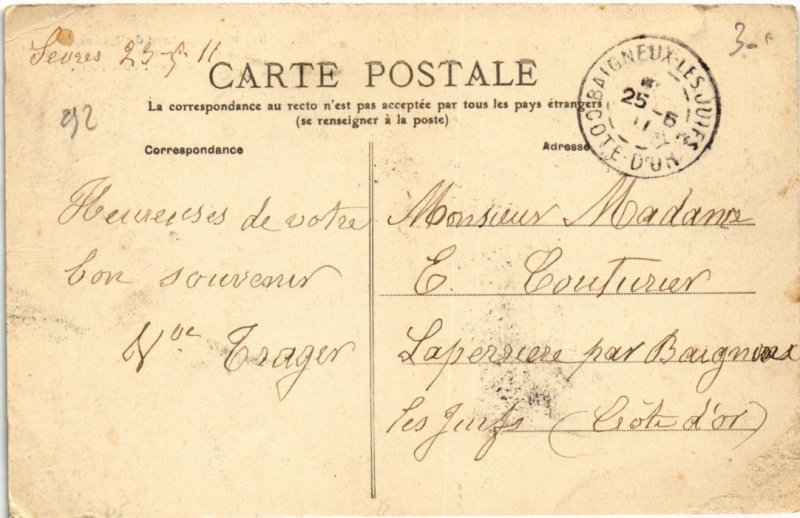 Sevres 23-5-11
3-
CARTE POSTALE
La correspondance au recto n'est pas acceptée par tous les pays étrangers
(se renseigner à la poste)
92
BAIGNEUX-LES-JUIFS
25-5
11
COTE-D'OR
Correspondance
Adresse
Heureuses de votre
bon souvenir
Vve Trager
Monsieur Madame
E. Couturier
Laperriere par Baigneux
les Juifs (Côte d'or)